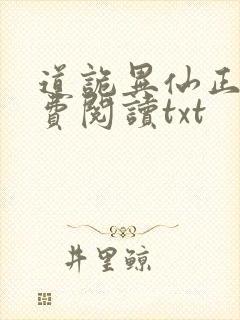 道詭異仙正
費閱讀txt
井里鯨